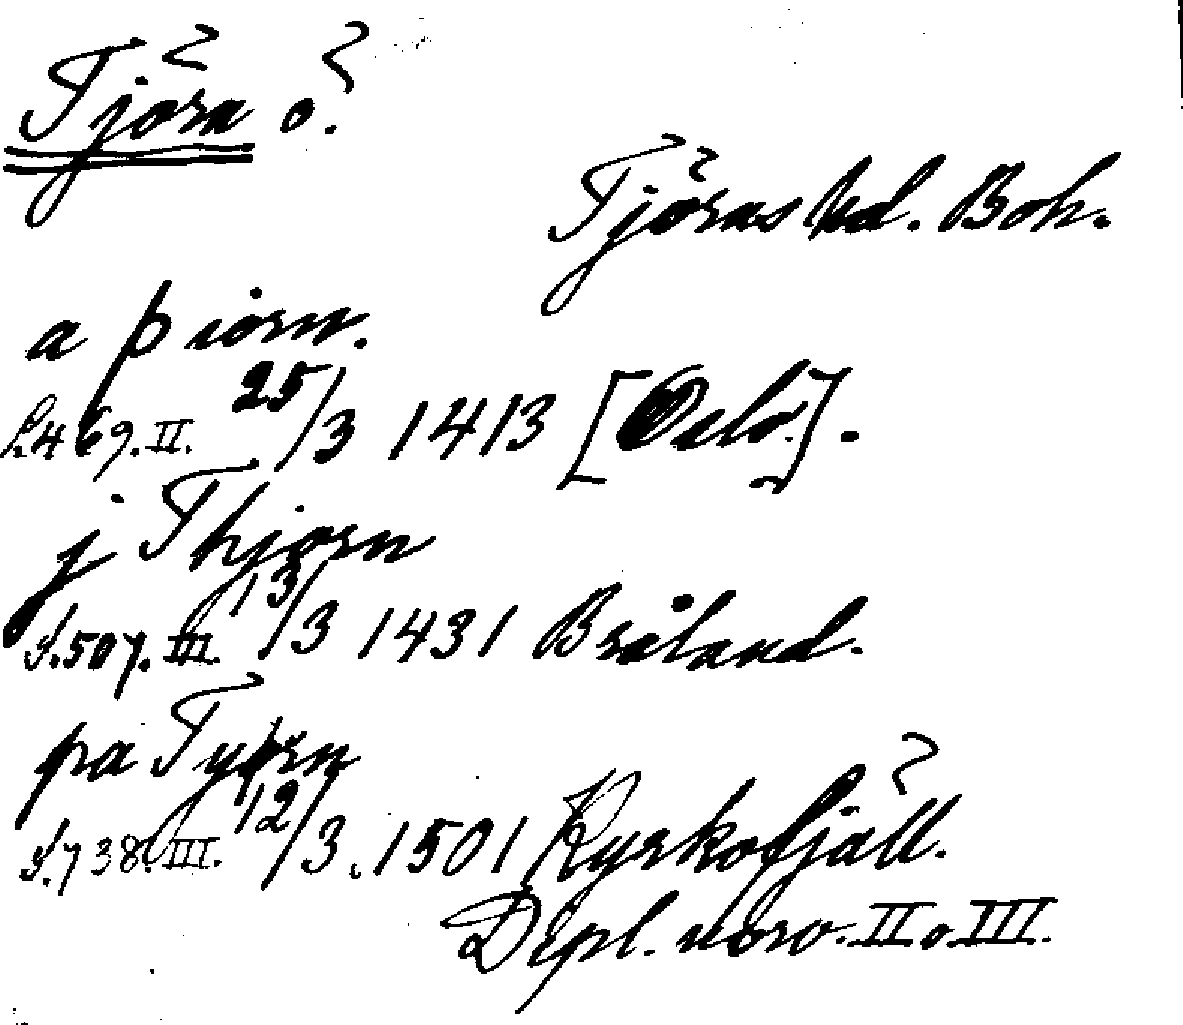 Tjörn ö.
Tjörns hd. Boh.
a þiorn.
S.469.II. 25/3 1413 [Oslo].
j Thjorn
S.507.III. 13/3 1431 Bråland.
pa Työrn
S.738.III. 12/3.1501 Kyrkofjäll.
Dipl. norv. II o III.